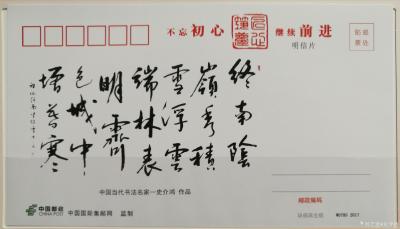 不忘 初心 继续 前进
明信片
贴邮
票处
终南阴
岭秀积
雪浮云
端林表
明霁
色城中
增暮寒
中国当代书法名家—史介鸿 作品
中国邮政
CHINA POST
中国国际集邮网 监制
邮政编码